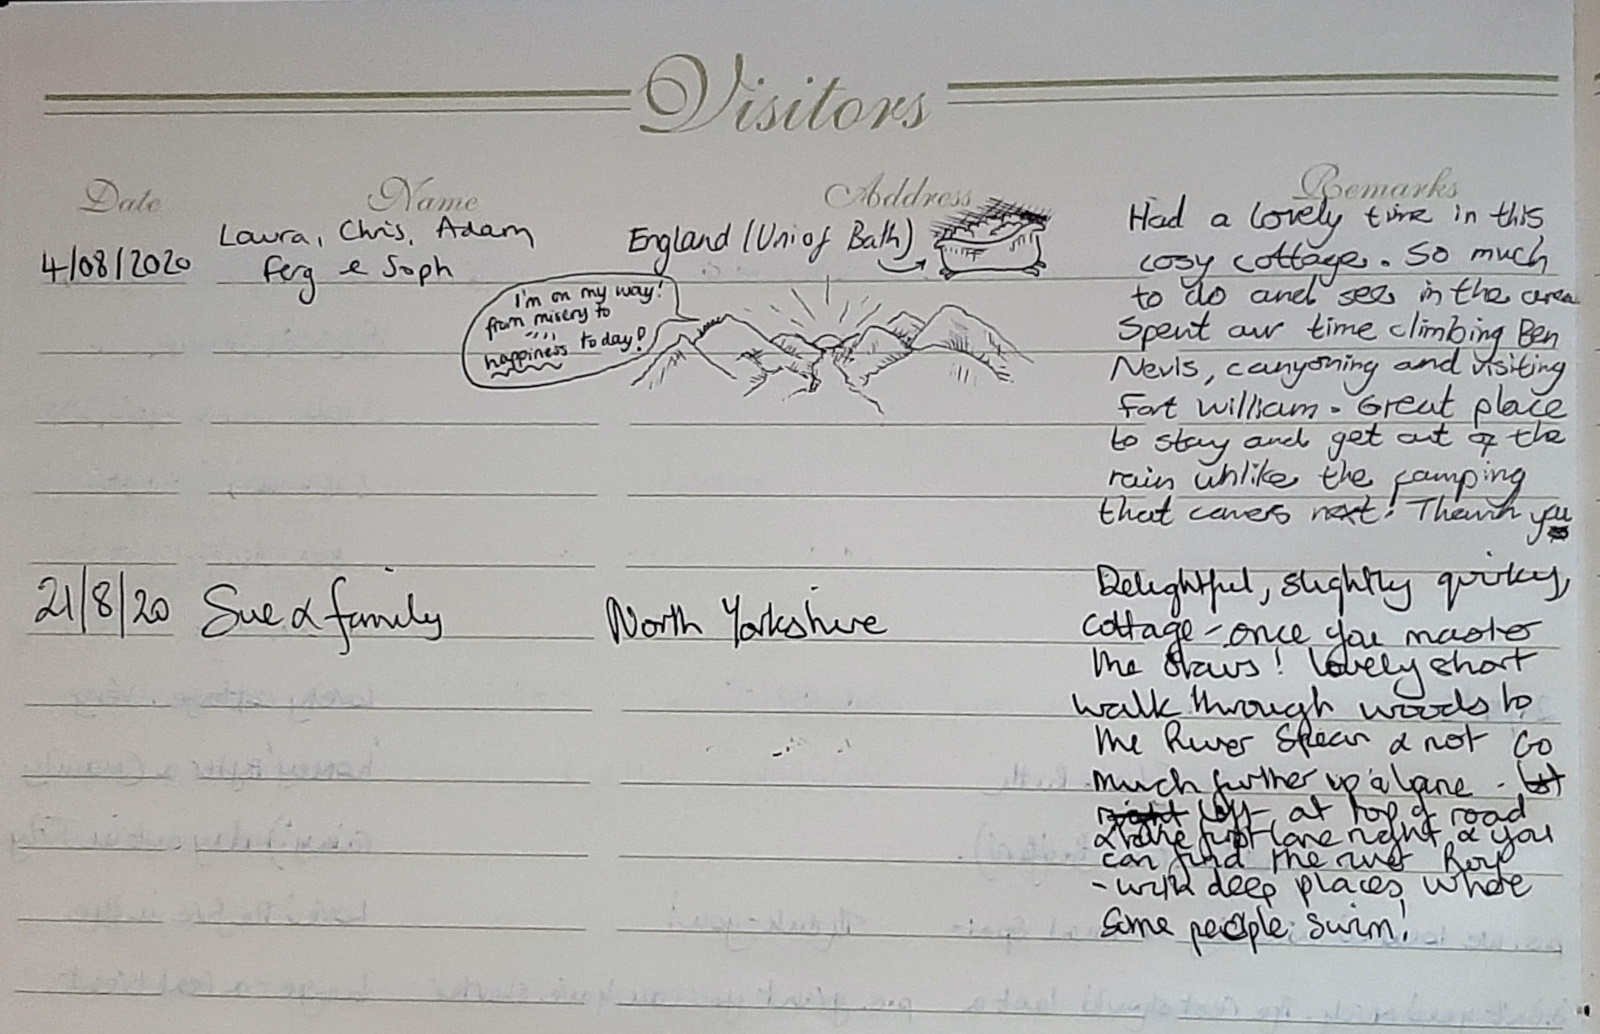 Visitors
Date Name Address Remarks
4/08/2020
Laura, Chris, Adam
Ferg & Soph
England (Uni of Bath)
I'm on my way!
from misery to
happiness today!
Had a lovely time in this
cosy cottage. So much
to do and see in the area
Spent our time climbing Ben
Nevis, canyoning and visiting
Fort William. Great place
to stay and get out of the
rain unlike the camping
that comes next! Thank you
21/8/20
Sue & family
North Yorkshire
Delightful, slightly quirky,
cottage - once you master
the stairs! Lovely short
walk through woods to
the River Spean & not Go
much further up a lane -
right left at top of road
& take first lane right & you
can find the river Roy
- with deep places where
some people swim!